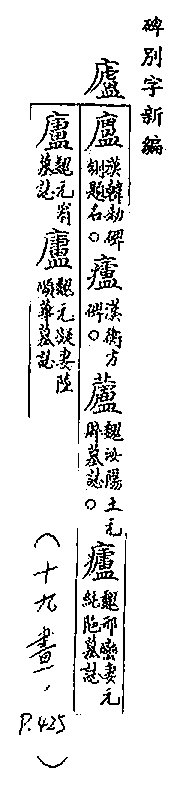 碑別字新編
廬
廬漢韓勑碑側題名。 癧漢衡方碑。 蘆魏汝陽王元睟墓誌。 癧魏邢巒妻元純陁墓誌
廬魏元墓誌 廬魏元凝妻陸順華墓誌
(十九畫, P.425)